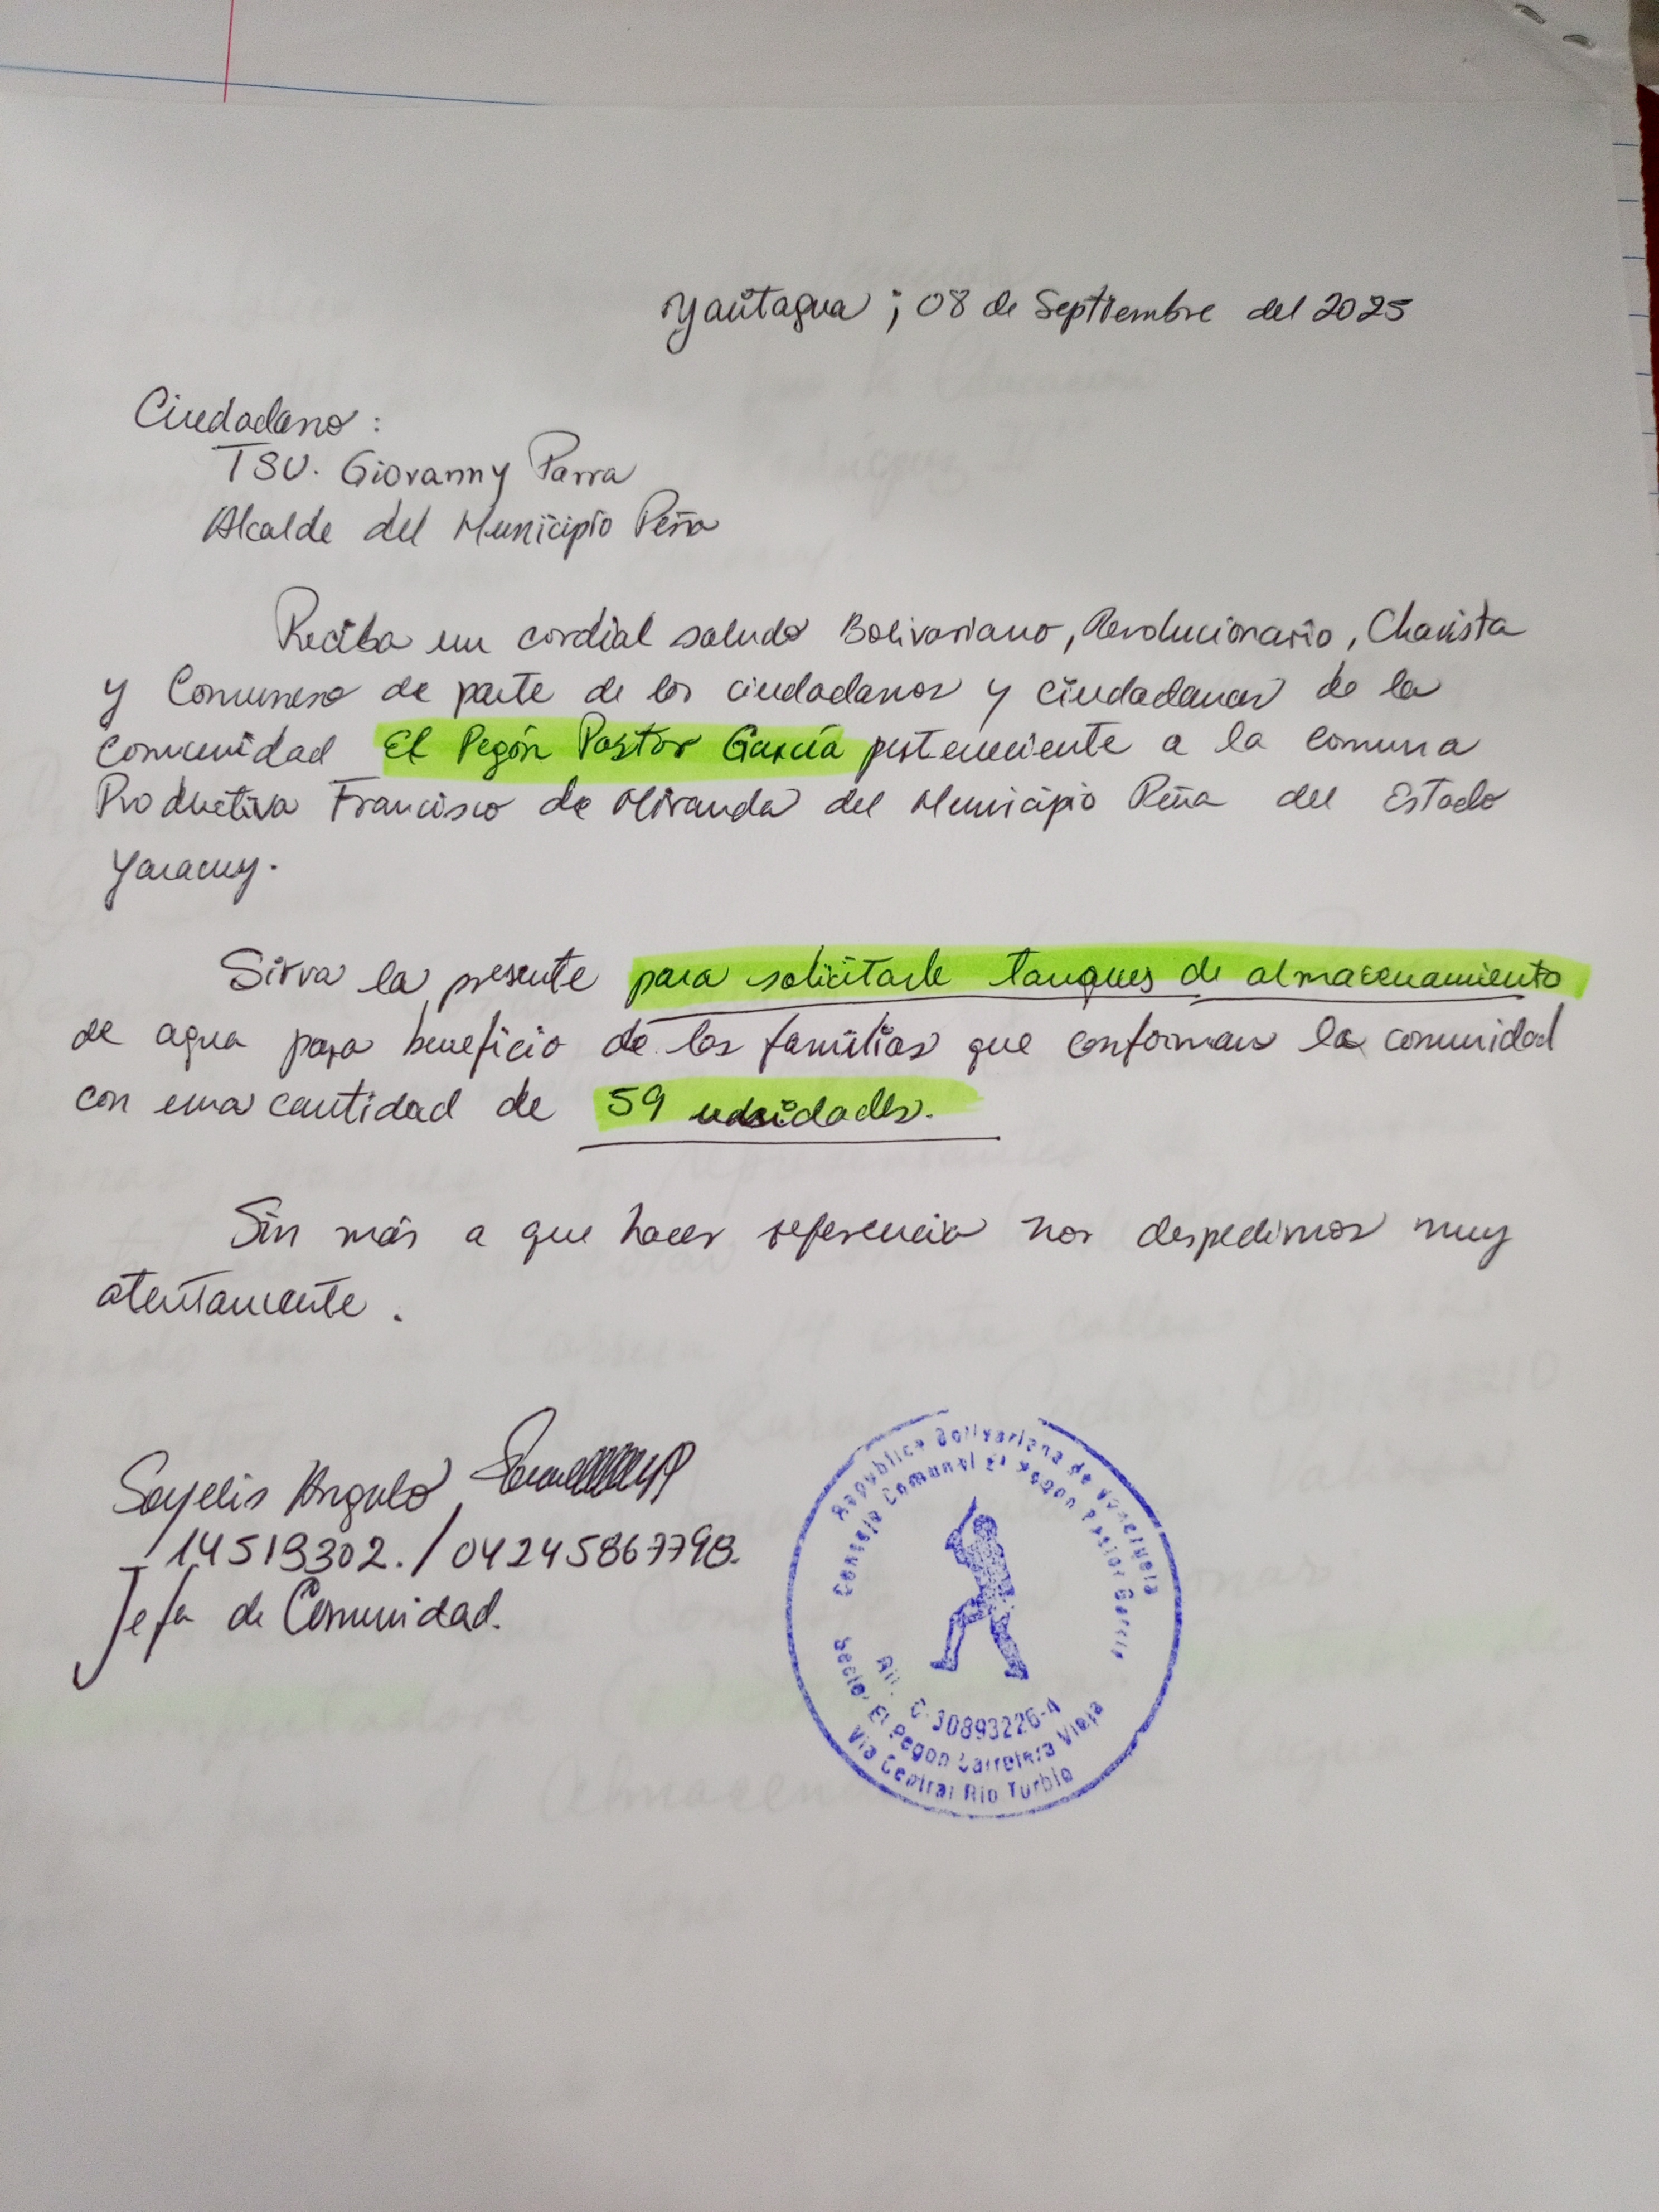 Yaritagua; 08 de Septiembre del 2025
Ciudadano:
TSU. Giovanny Parra
Alcalde del Municipio Peña
Reciba un cordial saludo Bolivariano, Revolucionario, Chavista
y Comunero de parte de los ciudadanos y ciudadanas de la
comunidad El Pegón Pastor García perteneciente a la comuna
Productiva Francisco de Miranda del Municipio Peña del Estado
Yaracuy.
Sirva la presente para solicitarle tanques de almacenamiento
de agua para beneficio de las familias que conforman la comunidad
con una cantidad de 59 unidades.
Sin más a que hacer referencia nos despedimos muy
atentamente.
Sayelis Angulo
14519302. / 04245867798.
Jefa de Comunidad.
Republica Bolivariana de Venezuela
Consejo Comunal El Pegon Pastor Garcia
Rif.: C-30893226-4
Sector El Pegon Carretera Vieja
Via Central Rio Turbio